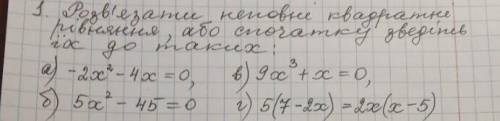 1. Розв'язати неповні квадратні
рівняння, або спочатку зведіть
їх до таких:
а) -2x² - 4x = 0, в) 9x³ + x = 0,
б) 5x² - 45 = 0 г) 5(7 - 2x) = 2x(x - 5)